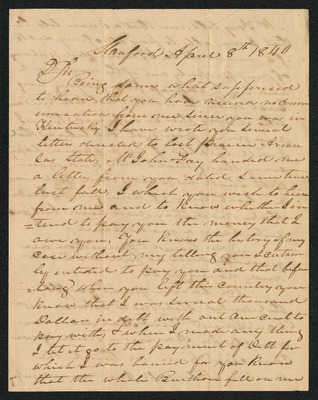 Stanford April 8th 1840
D Sir
Being some what suppresed
to learn that you have received no com
munication from me since you was in
Kentucky I have wrote you several
letters directed to Lost Prairie Arkan
sas State, Mr John Fry handed me
a letter from you dated some time
last fall, in which you wish to hear
from me and to know whether I in
=tend to pay you the money that I
owe you. You know the history of my
case without my telling you I certain
ly intend to pay you and that before
long when you left this country you
know that I was several thousand
Dollars in debt with out one cent to
pay with, & when I made any thing
I let it go to the payment of debt for
which I was bound for you know
that the whole Burthen fell on me